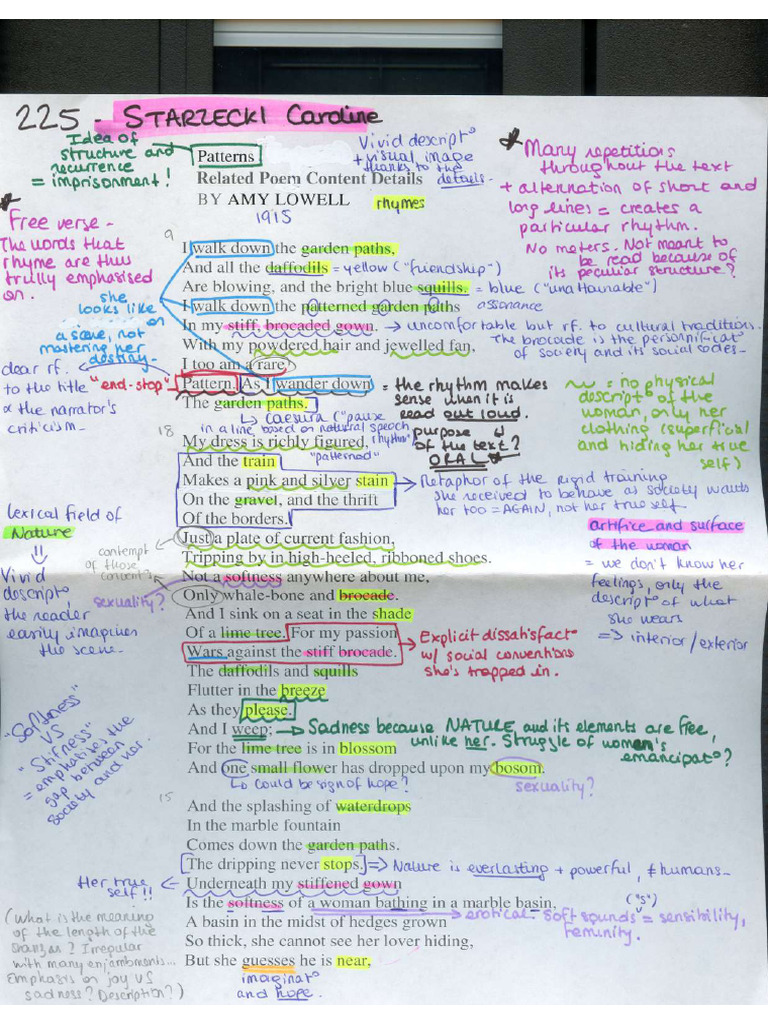 225 - STARZECKI Caroline
Idea of
structure and
recurrence
= imprisonment!
Patterns
Vivid descript°
+ visual image
thanks to the
details.
* Many repetitions
throughout the text
+ alternation of short and
long lines = creates a
particular rhythm.
No meters. Not meant to
be read because of
its peculiar structure?
Related Poem Content Details
BY AMY LOWELL
rhymes
1915
*
Free verse -
The words that
rhyme are thus
trully emphasised
on.
9
I walk down the garden paths,
And all the daffodils = yellow ("friendship")
Are blowing, and the bright blue squills. = blue ("unattainable")
I walk down the patterned garden paths assonance
In my stiff, brocaded gown. → uncomfortable but rf. to cultural traditions.
The brocade is the personnificat°
of society and its social codes.
With my powdered hair and jewelled fan,
I too am a rare
Pattern. As I wander down
The garden paths.
she
looks like
a scene, not
mastering her
destiny.
clear rf.
to the title "end-stop"
& the narrator's
criticism.
= the rhythm makes
sense when it is
read out loud.
purpose
of the text?
ORAL
↳ caesura ("pause
in a line based on natural speech
rhythm")
~ = no physical
descript° of the
woman, only her
clothing (superficial
and hiding her true
self)
18
My dress is richly figured,
"patterned"
And the train
Makes a pink and silver stain
On the gravel, and the thrift
Of the borders.
→ Metaphor of the rigid training
she received to behave as society wants
her too = AGAIN, not her true self.
Just a plate of current fashion,
Tripping by in high-heeled, ribboned shoes.
Not a softness anywhere about me,
Only whale-bone and brocade.
And I sink on a seat in the shade
Of a lime tree. For my passion
Wars against the stiff brocade.
The daffodils and squills
Flutter in the breeze
As they please.
And I weep;
For the lime tree is in blossom
And one small flower has dropped upon my bosom.
lexical field of
Nature
⇓
Vivid
descript°,
the reader
easily imagines
the scene.
contempt
of those
sexuality?
artifice and surface
of the woman
= we don't know her
feelings, only the
descript° of what
she wears
=> interior/exterior
Explicit dissatisfact°
w/ social conventions
she's trapped in.
→ Sadness because NATURE and its elements are free,
unlike her. Struggle of women's
emancipat°?
"Softness"
VS
"Stifness"
= emphatise the
gap between
society and her.
↳ could be sign of hope?
sexuality?
15
And the splashing of waterdrops
In the marble fountain
Comes down the garden paths.
The dripping never stops. => Nature is everlasting + powerful, ≠ humans.
Her true
self!!
Underneath my stiffened gown
Is the softness of a woman bathing in a marble basin,
A basin in the midst of hedges grown
So thick, she cannot see her lover hiding,
But she guesses he is near,
erotical - soft sounds ("s") = sensibility,
feminity.
(What is the meaning
of the length of the
stanzas? Irregular
with many enjambments...
Emphasis on joy VS
sadness? Description?)
imaginat°
and hope.